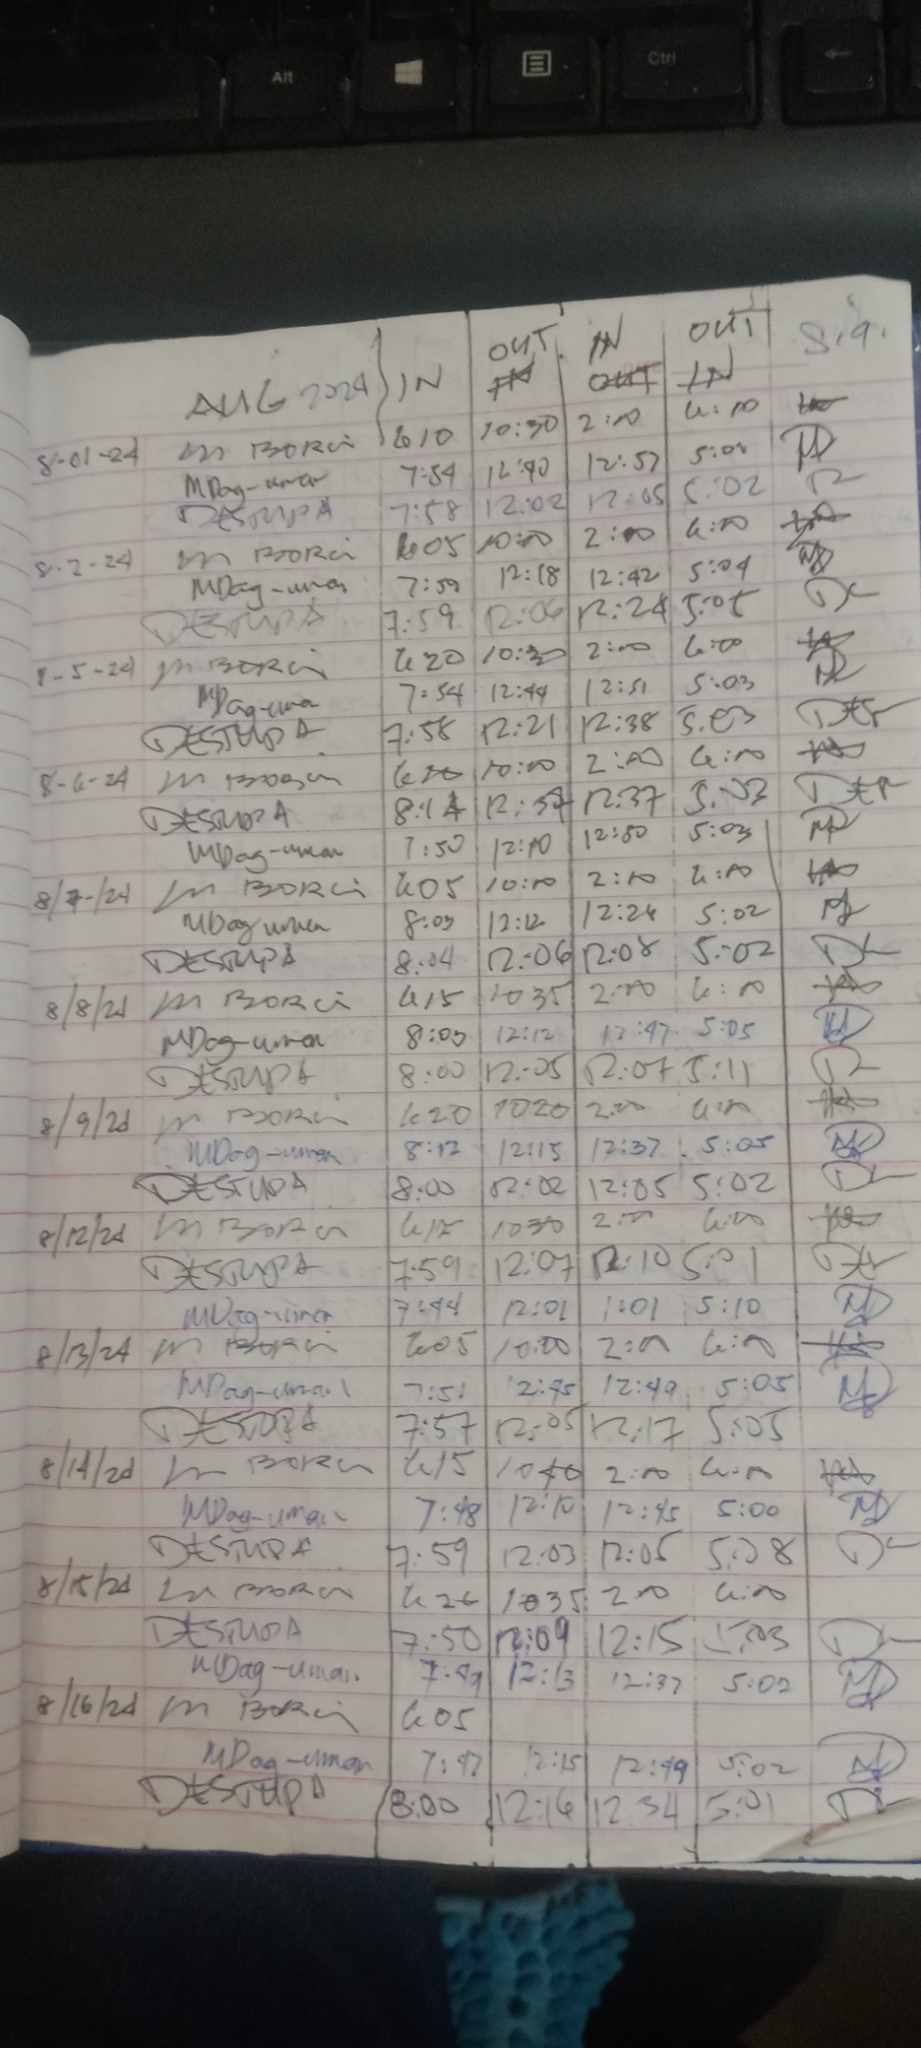 Alt
Ctrl
AUG 2024 IN OUT IN OUT S.g.
IN OUT IN
8-01-24 M BORCI 610 10:30 2:00 4:00
MDag-uman 7:54 12:40 12:57 5:00
DESTUPA 7:58 12:02 12:05 5:02
8-2-24 M BORCI 605 10:00 2:00 4:00
MDag-uman 7:59 12:18 12:42 5:04
DESTUPA 7:59 12:06 12:24 5:05
8-5-24 M BORCI 620 10:30 2:00 4:00
MDag-uman 7:54 12:44 12:51 5:03
DESTUPA 7:58 12:21 12:38 5:03
8-6-24 M BORCI 10:00 2:00 4:00
DESTUPA 8:14 12:37 5:03
MDag-uman 7:50 12:10 12:50 5:03
8/7/24 M BORCI 605 10:00 2:00 4:00
MDag-uman 8:03 12:12 12:24 5:02
DESTUPA 8:04 12:06 12:08 5:02
8/8/24 M BORCI 615 1035 2:00 4:00
MDag-uman 8:03 12:12 12:47 5:05
DESTUPA 8:00 12:05 12:07 5:11
8/9/24 M BORCI 620 1020 2:00 4:00
MDag-uman 8:12 12:15 12:37 5:05
DESTUPA 8:00 12:02 12:05 5:02
8/12/24 M BORCI 615 1030 2:00 4:00
DESTUPA 7:59 12:07 12:10 5:01
MDag-uman 7:44 12:01 1:01 5:10
8/13/24 M BORCI 605 10:00 2:00 4:00
MDag-uman 7:51 12:45 12:49 5:05
DESTUPA 7:57 12:05 12:17 5:05
8/14/24 M BORCI 615 2:00 4:00
MDag-uman 7:48 12:10 12:45 5:00
DESTUPA 7:59 12:03 12:05 5:08
8/15/24 M BORCI 1035 2:00 4:00
DESTUPA 7:50 12:09 12:15 5:03
MDag-uman 7:49 12:13 12:37 5:02
8/16/24 M BORCI 605
MDag-uman 7:47 12:15 12:49 5:02
DESTUPA 8:00 12:16 12:34 5:01